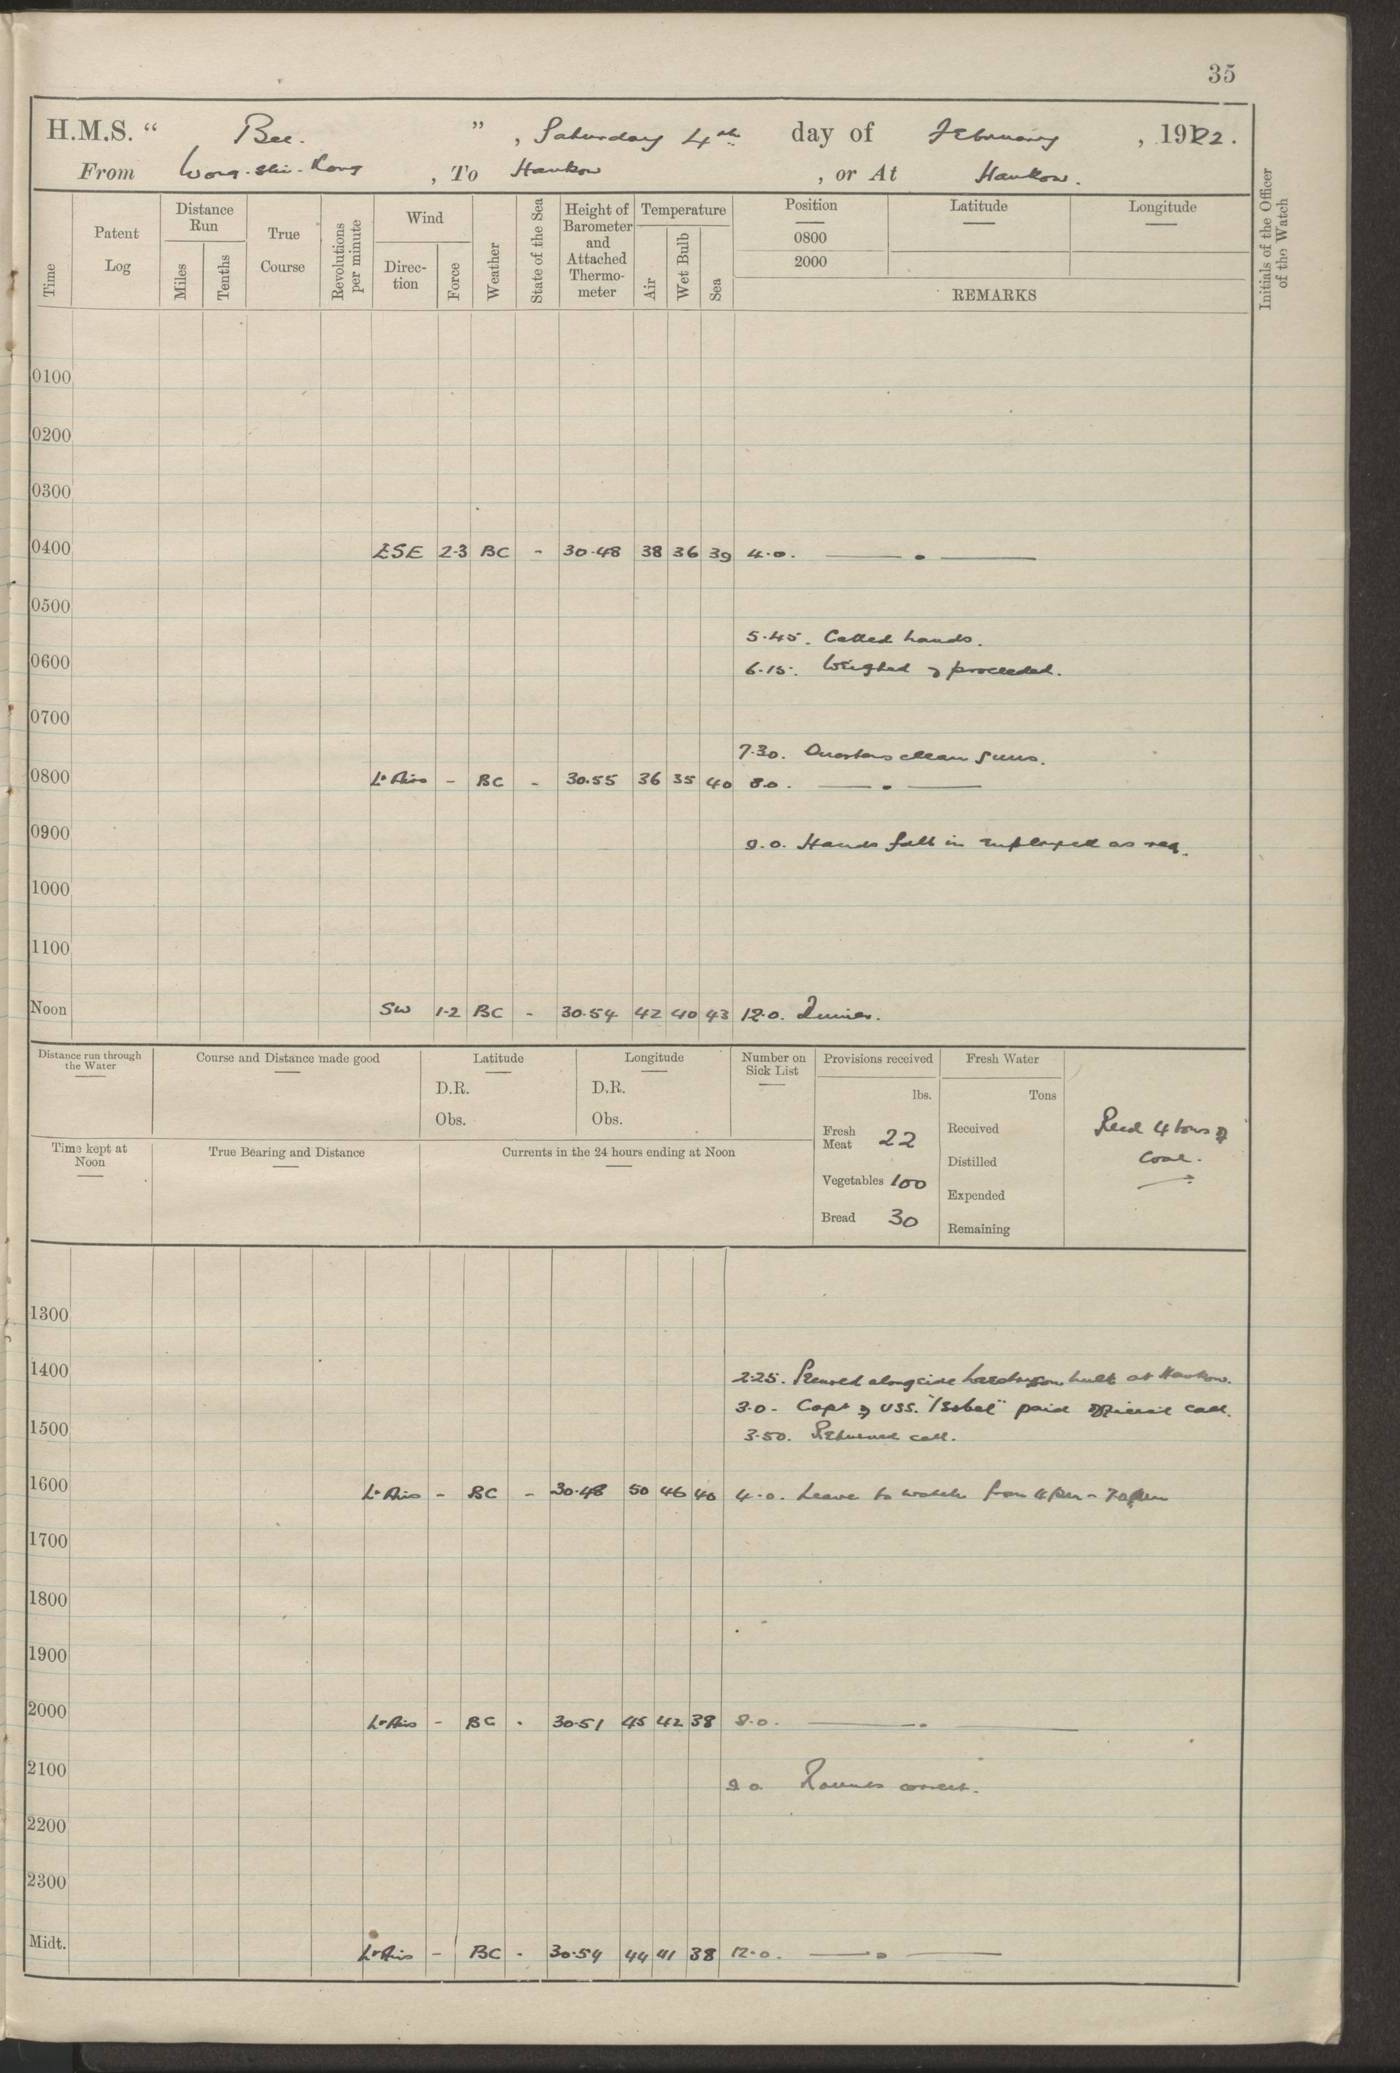 35
H.M.S. “ Bee. ” , Saturday 4th day of February , 1922.
From Wong-shi-Kong , To Hankow , or At Hankow.
Time
Patent Log
Distance Run
Miles
Tenths
True Course
Revolutions per minute
Wind
Direction
Force
Weather
State of the Sea
Height of Barometer and Attached Thermometer
Temperature
Air
Wet Bulb
Sea
Position
0800
2000
Latitude
Longitude
REMARKS
Initials of the Officer of the Watch
0100
0200
0300
0400 ESE 2-3 BC - 30.48 38 36 39 4.0.
0500
5.45. Called hands.
0600
6.15. Weighed & proceeded.
0700
7.30. Quarters clean guns.
0800 Lt Airs - BC - 30.55 36 35 40 8.0.
0900
9.0. Hands fall in employed as req.
1000
1100
Noon SW 1-2 BC - 30.54 42 40 43 12.0. Dinner.
Distance run through the Water
Course and Distance made good
Latitude
D.R.
Obs.
Longitude
D.R.
Obs.
Number on Sick List
Provisions received
lbs.
Fresh Meat 22
Vegetables 100
Bread 30
Fresh Water
Tons
Received
Distilled
Expended
Remaining
Recd 4 tons of
Coal.
Time kept at Noon
True Bearing and Distance
Currents in the 24 hours ending at Noon
1300
1400
2.25. Secured alongside hulk at Hankow.
3.0 - Capt of USS. "Isobel" paid official call.
1500
3.50. Returned call.
1600 Lt Airs - BC - 30.48 50 46 40 4.0. Leave to watch from 4pm - 7.0pm
1700
1800
1900
2000 Lt Airs - BC . 30.51 45 42 38 8.0.
2100
9.0 Rounds correct.
2200
2300
Midt. Lt Airs - BC . 30.54 44 41 38 12.0.